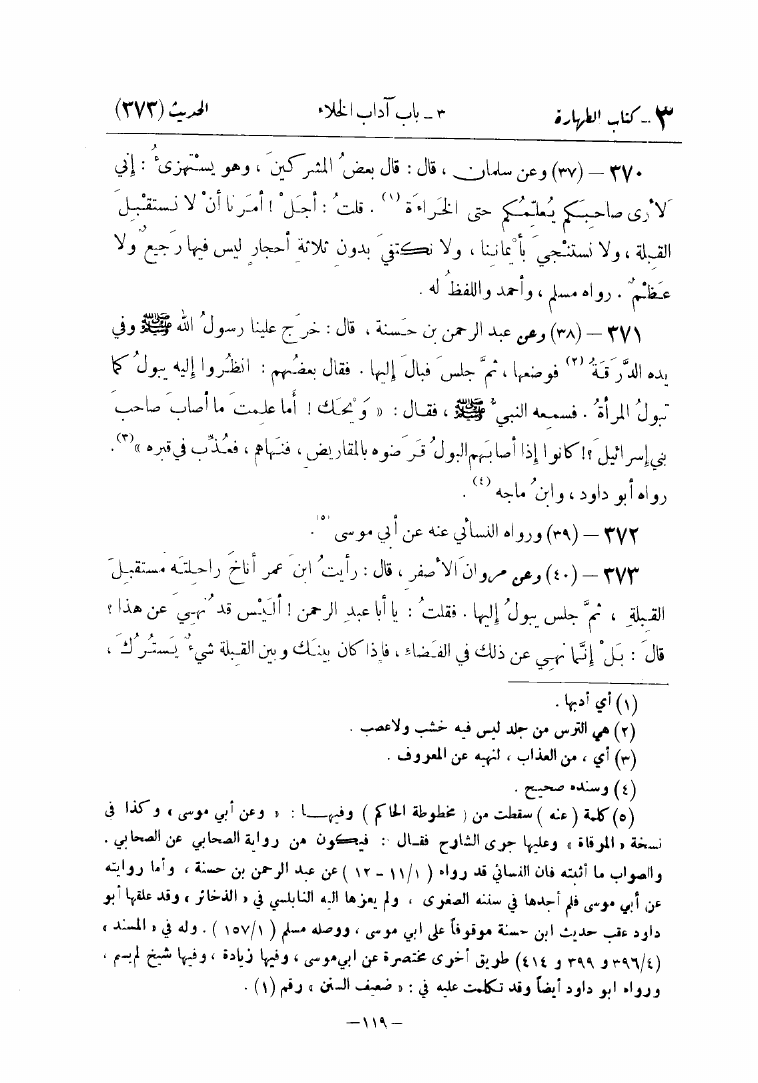 ٣ - كتاب الطهارة ٣ - باب آداب الخلاء الحديث (٣٧٣)
٣٧٠ – (٣٧) وعن سلمان ، قال : قال بعضُ المشركينَ ، وهو يسْتهزىءُ : إني
لأرى صاحبكم يُعلّمُكم حتى الخَراءَة (١) . قلتُ : أجلْ ! أمرَنا أنْ لا نستقبِلَ
القبلة ، ولا نستنْجيَ بأيْمانِنا ، ولا نكتفيَ بدونِ ثلاثةِ أحجارٍ ليس فيها رَجيعٌ ولا
عَظمٌ . رواه مسلم ، وأحمد واللفظُ له .
٣٧١ – (٣٨) وعن عبد الرحمن بن حَسنة ، قال : خرَج علينا رسولُ الله ﷺ وفي
يده الدَّرَقَةُ (٢) فوضعها ، ثمَّ جلسَ فبالَ إليها . فقال بعضُهم : انظُروا إليه يبولُ كما
تبولُ المرأةُ . فسمعه النبيُّ ﷺ ، فقال : « وَيْحَك ! أما علمتَ ما أصابَ صاحبَ
بني إسرائيلَ ؟! كانوا إذا أصابَهم البولُ قرَضوه بالمقاريض ، فنَهاهم ، فعُذّبَ في قبره » (٣) .
رواه أبو داود ، وابنُ ماجه (٤) .
٣٧٢ – (٣٩) ورواه النسائي عنه عن أبي موسى (٥) .
٣٧٣ – (٤٠) وعن مروانَ الأصفر ، قال : رأيتُ ابنَ عمر أناخَ راحلتَه مستقبلَ
القبلةِ ، ثمَّ جلس يبولُ إليها . فقلتُ : يا أبا عبدِ الرحمن ! أليْس قد نُهيَ عن هذا ؟
قالَ : بَلْ إنَّما نهي عن ذلك في الفَضاءِ ، فإذا كان بينَك وبين القبلة شيءٌ يَستُرُكَ ،
(١) أي أدبها .
(٢) هي الترس من جلد ليس فيه خشب ولا عصب .
(٣) أي ، من العذاب ، لنهيه عن المعروف .
(٤) وسنده صحيح .
(٥) كلمة ( عنه ) سقطت من ( مخطوطة الحاكم ) وفيهـا : « وعن أبي موسى » وكذا في
نسخة « المرقاة » وعليها جرى الشارح فقال : فيكون من رواية الصحابي عن الصحابي .
والصواب ما أثبته فان النسائي قد رواه ( ١/١١ - ١٢ ) عن عبد الرحمن بن حسنة ، وأما روايته
عن أبي موسى فلم أجدها في سننه الصغرى ، ولم يعزها اليه النابلسي في « الذخائر » وقد علقها أبو
داود عقب حديث ابن حسنة موقوفاً على ابي موسى ، ووصله مسلم ( ١/١٥٧ ) . وله في « المسند »
(٤/٣٩٦ و ٣٩٩ و ٤١٤) طريق أخرى مختصرة عن ابي موسى ، وفيها زيادة ، وفيها شيخ لم يسم ،
ورواه ابو داود أيضاً وقد تكلمت عليه في : « ضعيف السنن » رقم (١) .
– ١١٩ –